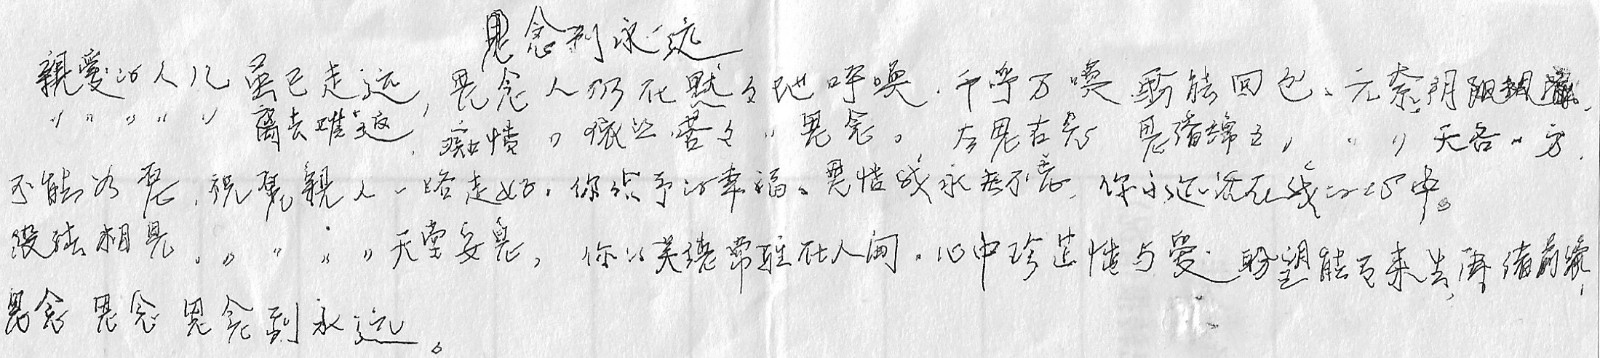 思念到永远
親爱的人儿虽已走远,思念人仍在默々地呼唤.千呼万唤盼能回也、无奈阴阳相隔.
〃〃〃〃〃离去难返,痴情〃依然苦々〃思念。左思右想 思绪绵々,〃〃〃天各一方.
不能如愿.祝愿親人一路走好.你给予的幸福、恩情我永志不忘,你永远活在我的心中。
没法相見.〃〃〃〃天堂安息,你的英魂常驻在人间.心中珍藏情与爱.盼望能了来生再续前缘.
思念 思念 思念到永远。